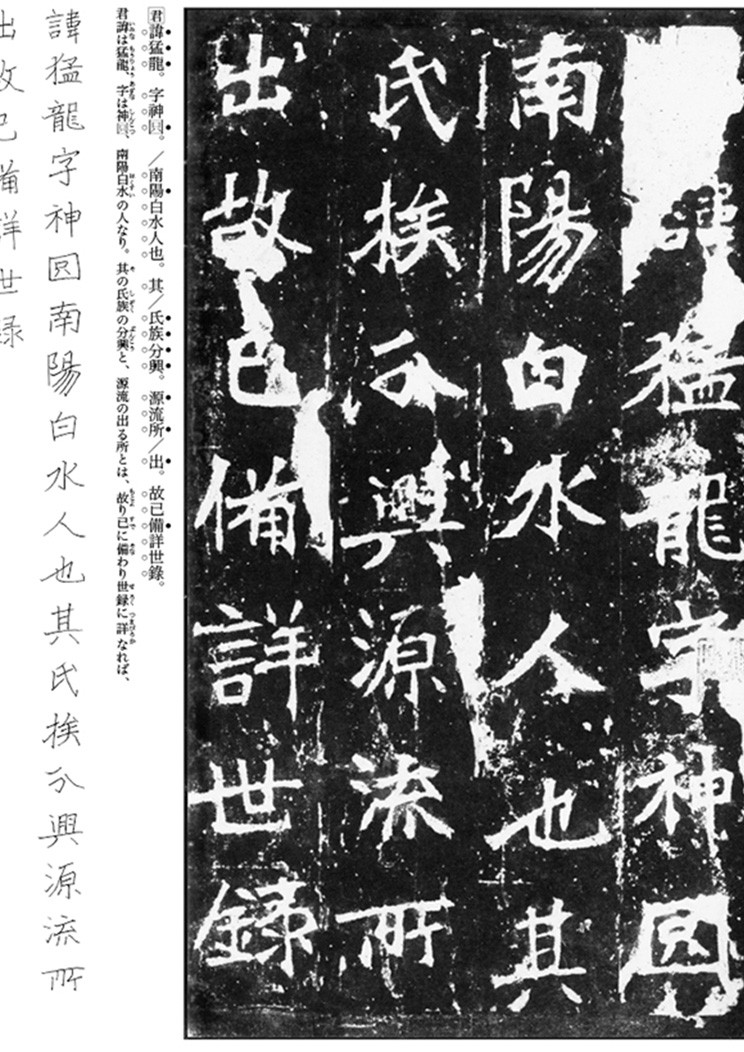 諱猛龍字神囧
南陽白水人也其
氏族分興源流所
出故已備詳世錄
君諱猛龍。字神囧。／南陽白水人也。其／氏族分興。源流所／出。故已備詳世錄。
君諱は猛龍、字は神囧、南陽白水の人なり。其の氏族の分興と、源流の出る所とは、故り已に備わり世録に詳なれば、
諱猛龍字神囧南陽白水人也其氏族分興源流所
出故已備詳世録